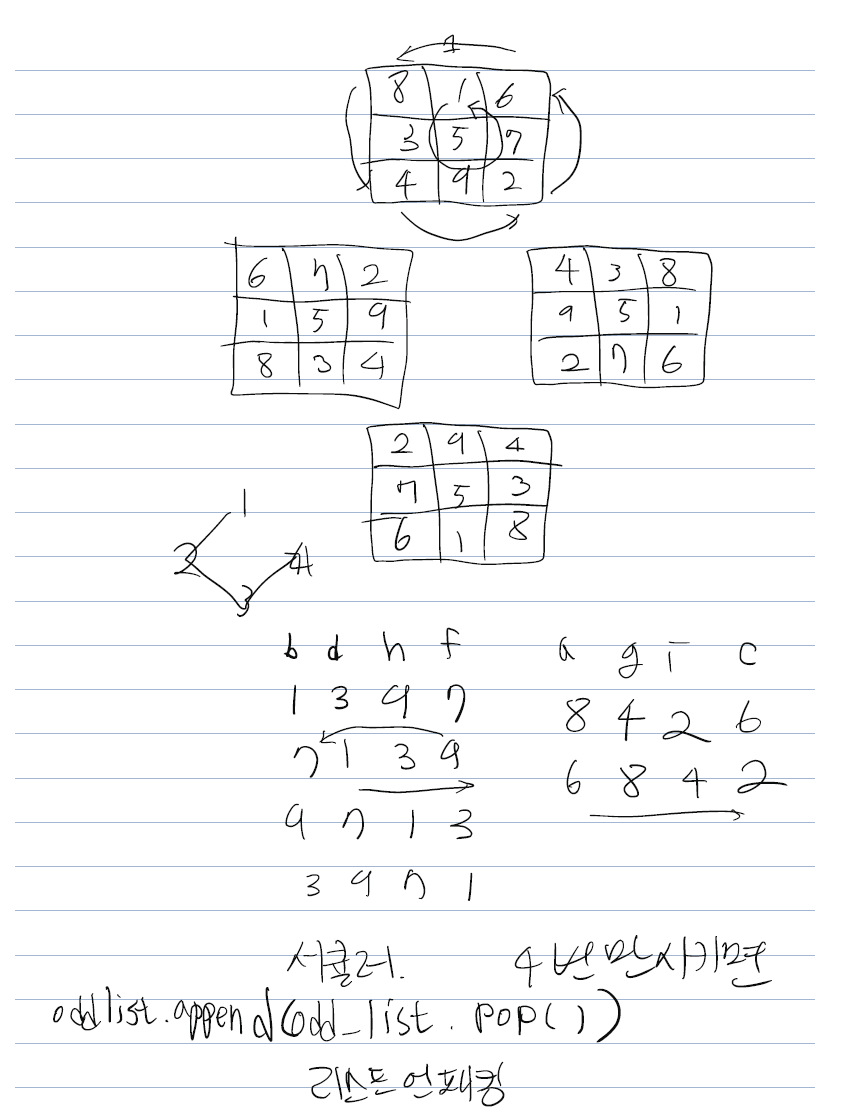 1
8 1 6
3 5 7
4 9 2
6 7 2
1 5 9
8 3 4
4 3 8
9 5 1
2 7 6
2 9 4
7 5 3
6 1 8
1
2 4
3
b d h f
1 3 9 7
7 1 3 9
9 7 1 3
3 9 7 1
a g i c
8 4 2 6
6 8 4 2
서큘러. 4번만시키면
oddlist.append(odd_list.pop())
리스트언패킹